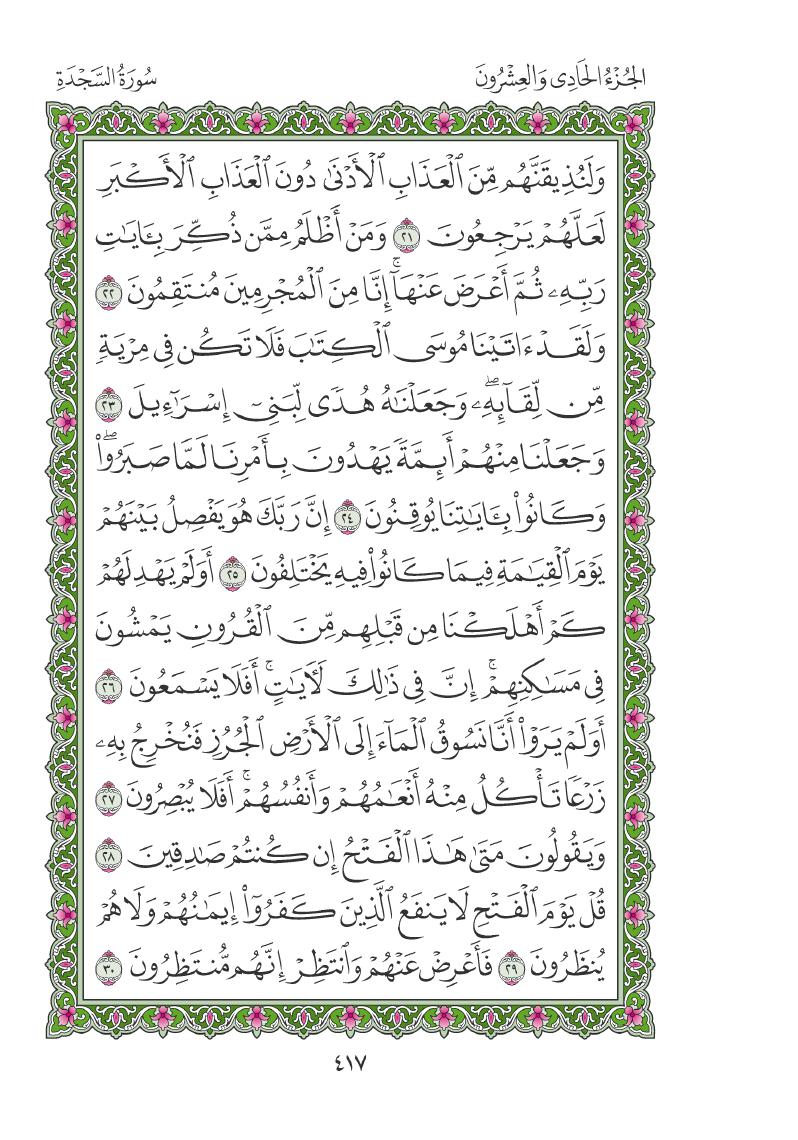 الجُزْءُ الحَادِي وَالعِشْرُونَ
سُورَةُ السَّجْدَةِ
وَلَنُذِيقَنَّهُم مِّنَ ٱلْعَذَابِ ٱلْأَدْنَىٰ دُونَ ٱلْعَذَابِ ٱلْأَكْبَرِ
لَعَلَّهُمْ يَرْجِعُونَ ٢١ وَمَنْ أَظْلَمُ مِمَّن ذُكِّرَ بِـَٔايَـٰتِ
رَبِّهِۦ ثُمَّ أَعْرَضَ عَنْهَآ ۚ إِنَّا مِنَ ٱلْمُجْرِمِينَ مُنتَقِمُونَ ٢٢
وَلَقَدْ ءَاتَيْنَا مُوسَى ٱلْكِتَـٰبَ فَلَا تَكُن فِى مِرْيَةٍ
مِّن لِّقَآئِهِۦ ۖ وَجَعَلْنَـٰهُ هُدًى لِّبَنِىٓ إِسْرَٰٓءِيلَ ٢٣
وَجَعَلْنَا مِنْهُمْ أَئِمَّةً يَهْدُونَ بِأَمْرِنَا لَمَّا صَبَرُوا۟ ۖ
وَكَانُوا۟ بِـَٔايَـٰتِنَا يُوقِنُونَ ٢٤ إِنَّ رَبَّكَ هُوَ يَفْصِلُ بَيْنَهُمْ
يَوْمَ ٱلْقِيَـٰمَةِ فِيمَا كَانُوا۟ فِيهِ يَخْتَلِفُونَ ٢٥ أَوَلَمْ يَهْدِ لَهُمْ
كَمْ أَهْلَكْنَا مِن قَبْلِهِم مِّنَ ٱلْقُرُونِ يَمْشُونَ
فِى مَسَـٰكِنِهِمْ ۚ إِنَّ فِى ذَٰلِكَ لَـَٔايَـٰتٍ ۚ أَفَلَا يَسْمَعُونَ ٢٦
أَوَلَمْ يَرَوْا۟ أَنَّا نَسُوقُ ٱلْمَآءَ إِلَى ٱلْأَرْضِ ٱلْجُرُزِ فَنُخْرِجُ بِهِۦ
زَرْعًا تَأْكُلُ مِنْهُ أَنْعَـٰمُهُمْ وَأَنفُسُهُمْ ۚ أَفَلَا يُبْصِرُونَ ٢٧
وَيَقُولُونَ مَتَىٰ هَـٰذَا ٱلْفَتْحُ إِن كُنتُمْ صَـٰدِقِينَ ٢٨
قُلْ يَوْمَ ٱلْفَتْحِ لَا يَنفَعُ ٱلَّذِينَ كَفَرُوٓا۟ إِيمَـٰنُهُمْ وَلَا هُمْ
يُنظَرُونَ ٢٩ فَأَعْرِضْ عَنْهُمْ وَٱنتَظِرْ إِنَّهُم مُّنتَظِرُونَ ٣٠
٤١٧